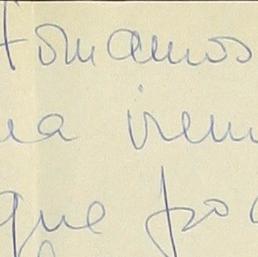 tomamos
na irem
que po